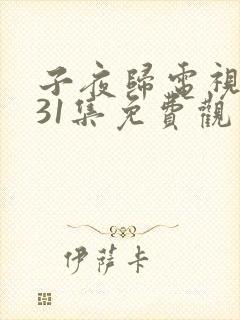 子夜歸電視
31集免費觀
伊薩卡